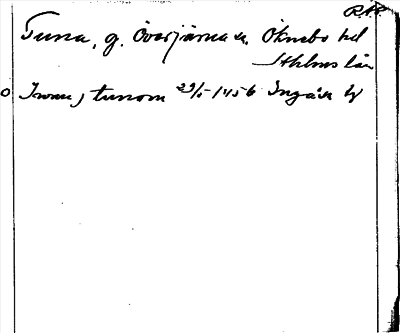 RAP.
Tuna, g. Överjärna sn. Öknebo hd
Sthlms län
Iwan j tunom 29/5-1456 Ingår by